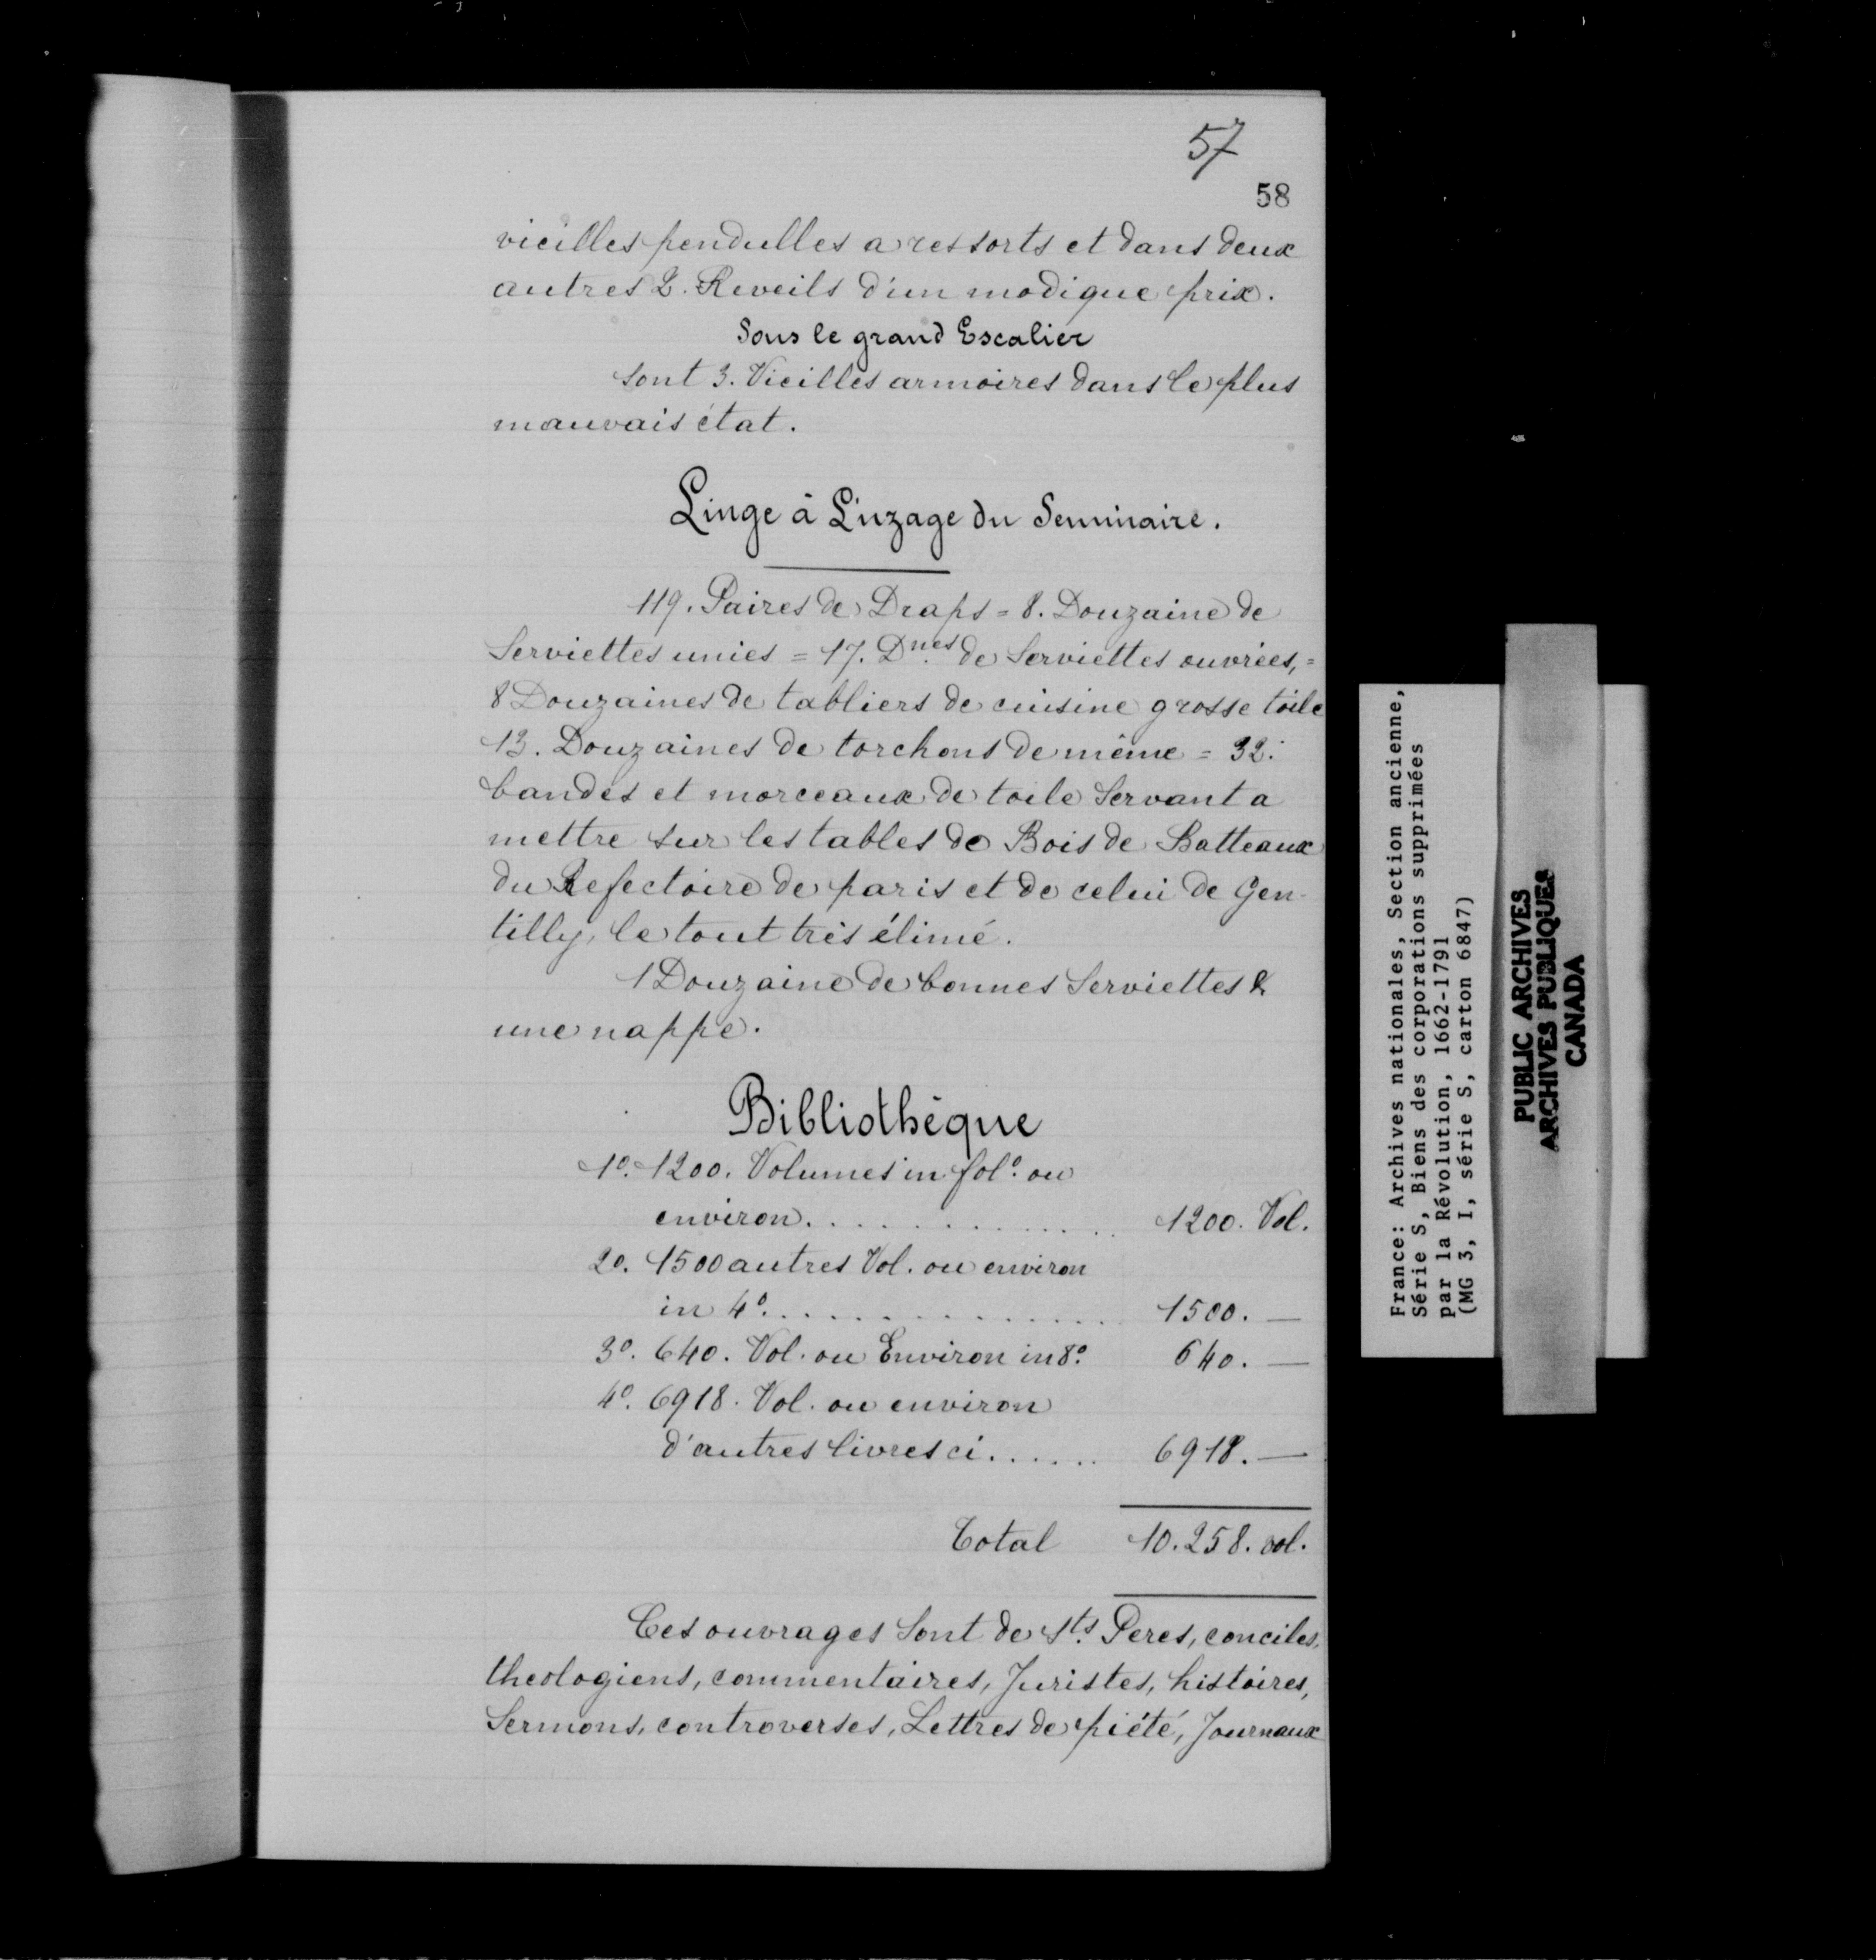 57
58
vieilles pendulles a ressorts et dans deux
autres 2. Reveils d'un modique prix.
Sous le grand Escalier
sont 3. Vieilles armoires dans le plus
mauvais état.
Linge à L'uzage du Seminaire.
119. Paires de Draps = 8. Douzaine de
Serviettes unies = 17. Dnes de Serviettes ouvrées, =
8 Douzaines de tabliers de cuisine grosse toile
13. Douzaines de torchons de même = 32.
bandes et morceaux de toile Servant a
mettre sur les tables de Bois de Batteaux
du Refectoire de paris et de celui de Gen-
tilly, le tout très élimé.
1 Douzaine de bonnes Serviettes &
une nappe.
Bibliothèque
1o. 1200. Volumes in folo. ou
environ. . . . . . . . . . . . . 1200. Vol.
2o. 1500 autres Vol. ou environ
in 4o. . . . . . . . . . . . . . 1500. —
3o. 640. Vol. ou Environ in 8o. 640. —
4o. 6918. Vol. ou environ
d'autres livres ci. . . . . . 6918. —
Total 10.258. vol.
Ces ouvrages Sont de Sts. Peres, conciles,
theologiens, commentaires, Juristes, histoires,
Sermons, controverses, Lettres de piété, Journaux
France: Archives nationales, Section ancienne,
Série S, Biens des corporations supprimées
par la Révolution, 1662-1791
(MG 3, I, série S, carton 6847)
PUBLIC ARCHIVES
ARCHIVES PUBLIQUES
CANADA